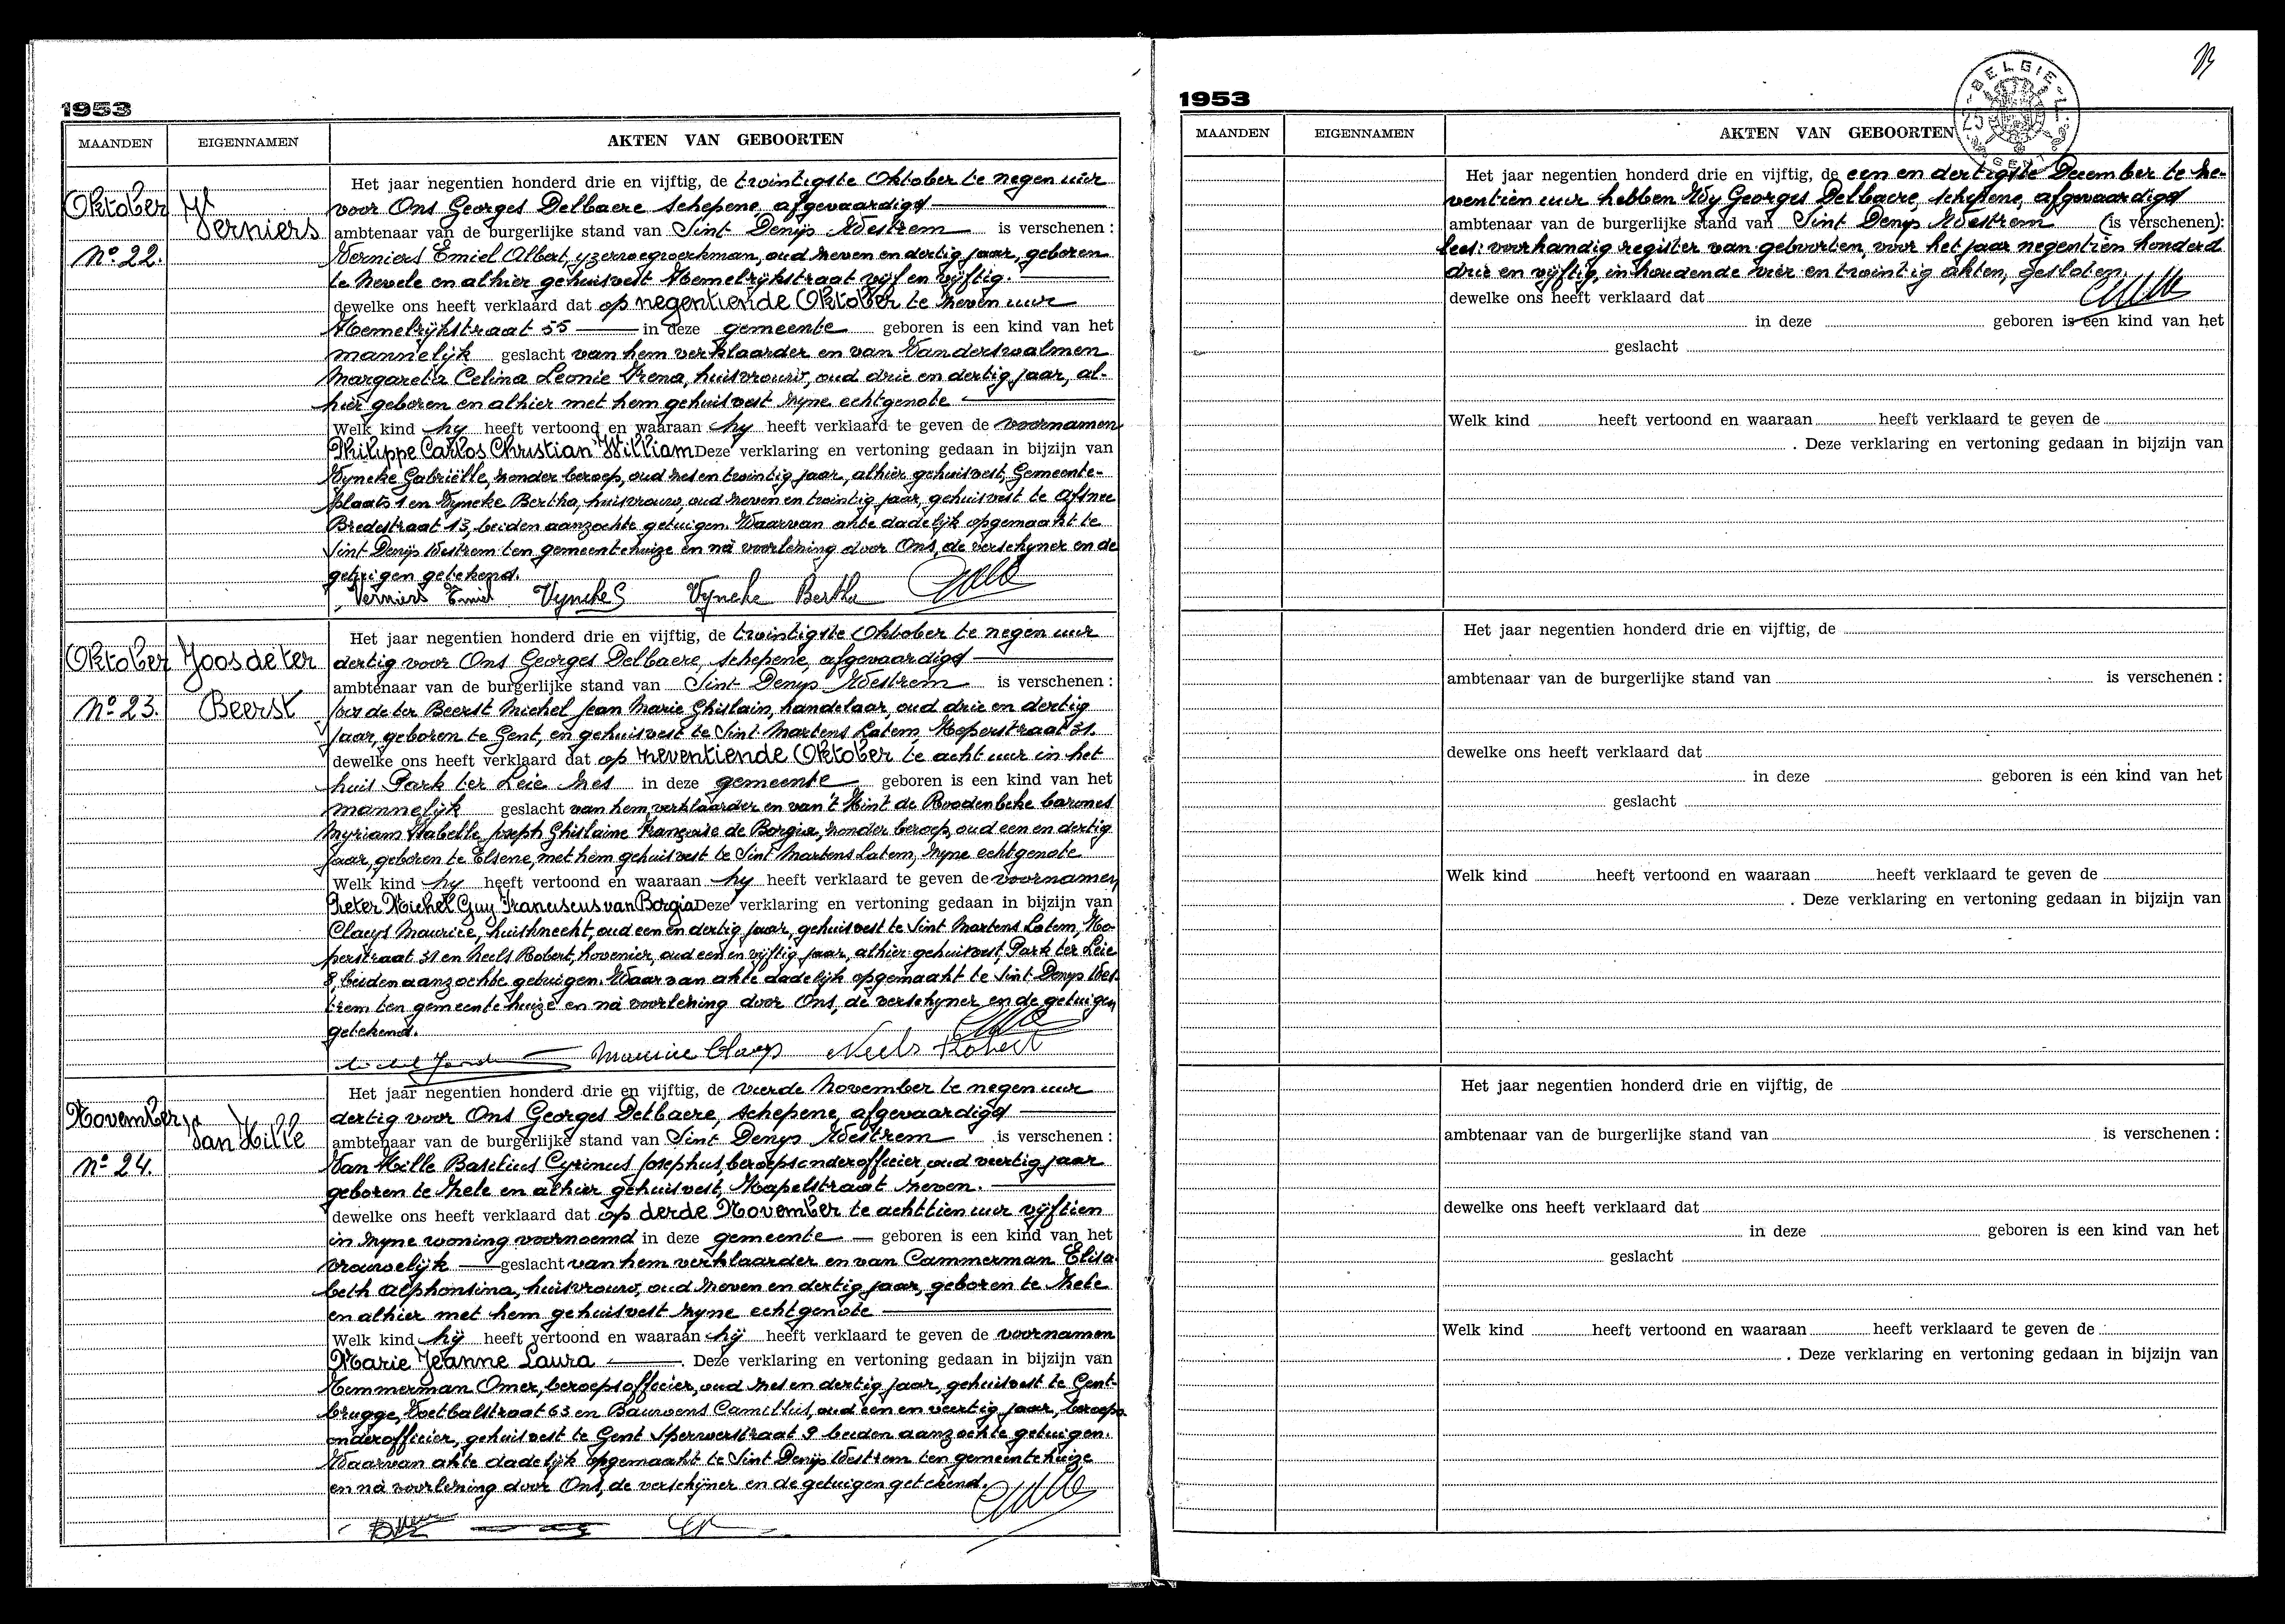 1953
MAANDEN EIGENNAMEN AKTEN VAN GEBOORTEN
Oktober
Verniers
Nº 22.
Het jaar negentien honderd drie en vijftig, de twintigste Oktober te negen uur
voor Ons Georges Delbaere schepene, afgevaardigd
ambtenaar van de burgerlijke stand van Sint Denys Westrem is verschenen :
Verniers Emiel Albert, yzerwegwerkman, oud zeven en dertig jaar, geboren
te Nevele en alhier gehuisvest Hemelrijkstraat vijf en vijftig.
dewelke ons heeft verklaard dat op negentiende Oktober te zeven uur
Hemelrijkstraat 55 in deze gemeente geboren is een kind van het
mannelijk geslacht van hem verklaarder en van Vanderswalmen
Margareta Celina Leonie Irena, huisvrouw, oud drie en dertig jaar, al-
hier geboren en alhier met hem gehuisvest zyne echtgenote
Welk kind hy heeft vertoond en waaraan hy heeft verklaard te geven de voornamen
Philippe Carlos Christian William Deze verklaring en vertoning gedaan in bijzijn van
Vyncke Gabriëlle, zonder beroep, oud zes en twintig jaar, alhier gehuisvest, Gemeente-
plaats 1 en Vyncke Bertha, huisvrouw, oud zeven en twintig jaar, gehuisvest te Afsnee
Bredestraat 13, beiden aanzochte getuigen. Waarvan akte dadelijk opgemaakt te
Sint Denijs Westrem ten gemeentehuize en nà voorlezing door Ons, de verschyner en de
getuigen getekend.
Verniers Emiel Vyncke G Vyncke Bertha
Oktober Joos de ter
Nº 23. Beerst
Het jaar negentien honderd drie en vijftig, de twintigste Oktober te negen uur
dertig voor Ons Georges Delbaere, schepene, afgevaardigd
ambtenaar van de burgerlijke stand van Sint Denys Westrem is verschenen :
Joos de ter Beerst Michel Jean Marie Ghislain, handelaar, oud drie en dertig
jaar, geboren te Gent, en gehuisvest te Sint Martens Latem, Koperstraat 31.
dewelke ons heeft verklaard dat op zeventiende Oktober te acht uur in het
huis Park ter Leie zes in deze gemeente geboren is een kind van het
mannelijk geslacht van hem verklaarder en van 't Kint de Roodenbeke barones
Myriam Isabelle Joseph Ghislaine Françoise de Borgia, zonder beroep, oud een en dertig
jaar, geboren te Elsene, met hem gehuisvest te Sint Martens Latem, zyne echtgenote
Welk kind hy heeft vertoond en waaraan hy heeft verklaard te geven de voornamen
Pieter Michel Guy Franciscus van Borgia Deze verklaring en vertoning gedaan in bijzijn van
Claeys Maurice, huisknecht, oud een en dertig jaar, gehuisvest te Sint Martens Latem, Ko-
perstraat 31 en Neels Robert, hovenier, oud een en vijftig jaar, alhier gehuisvest, Park ter Leie
8, beiden aanzochte getuigen. Waarvan akte dadelijk opgemaakt te Sint Denys Wes-
trem ten gemeentehuize en nà voorlezing door Ons, de verschyner en de getuigen
getekend.
Maurice Claeys Neels Robert
November
Van Hille
Nº 24.
Het jaar negentien honderd drie en vijftig, de vierde November te negen uur
dertig voor Ons Georges Delbaere, schepene, afgevaardigd
ambtenaar van de burgerlijke stand van Sint Denys Westrem is verschenen :
Van Hille Basilius Cyrinus Josephus, beroepsonderofficier, oud veertig jaar
geboren te Zele en alhier gehuisvest, Kapelstraat zeven.
dewelke ons heeft verklaard dat op derde November te achttien uur vijftien
in zyne woning voornoemd in deze gemeente geboren is een kind van het
vrouwelijk geslacht van hem verklaarder en van Cammerman Elisa-
beth Alphonsina, huisvrouw, oud zeven en dertig jaar, geboren te Zele
en alhier met hem gehuisvest zyne echtgenote
Welk kind hij heeft vertoond en waaraan hij heeft verklaard te geven de voornamen
Marie Jeanne Laura . Deze verklaring en vertoning gedaan in bijzijn van
Temmerman Omer, beroepsofficier, oud zes en dertig jaar, gehuisvest te Gent-
brugge, Voetbalstraat 63 en Bauwens Camillus, oud een en veertig jaar, beroeps-
onderofficier, gehuisvest te Gent Sperwerstraat 9 beiden aanzochte getuigen.
Waarvan akte dadelijk opgemaakt te Sint Denijs Westrem ten gemeentehuize
en nà voorlezing door Ons, de verschijner en de getuigen getekend.
1953
BELGIE
MAANDEN EIGENNAMEN AKTEN VAN GEBOORTEN
Het jaar negentien honderd drie en vijftig, de een en dertigste December te ze-
ventien uur hebben Wy Georges Delbaere, schepene, afgevaardigd
ambtenaar van de burgerlijke stand van Sint Denys Westrem (is verschenen):
lees: voorhandig register van geboorten, voor het jaar negentien honderd
drie en vijftig, inhoudende vier en twintig akten, gesloten.
dewelke ons heeft verklaard dat
in deze geboren is een kind van het
geslacht
Welk kind heeft vertoond en waaraan heeft verklaard te geven de
. Deze verklaring en vertoning gedaan in bijzijn van
Het jaar negentien honderd drie en vijftig, de
ambtenaar van de burgerlijke stand van is verschenen :
dewelke ons heeft verklaard dat
in deze geboren is een kind van het
geslacht
Welk kind heeft vertoond en waaraan heeft verklaard te geven de
. Deze verklaring en vertoning gedaan in bijzijn van
Het jaar negentien honderd drie en vijftig, de
ambtenaar van de burgerlijke stand van is verschenen :
dewelke ons heeft verklaard dat
in deze geboren is een kind van het
geslacht
Welk kind heeft vertoond en waaraan heeft verklaard te geven de
. Deze verklaring en vertoning gedaan in bijzijn van